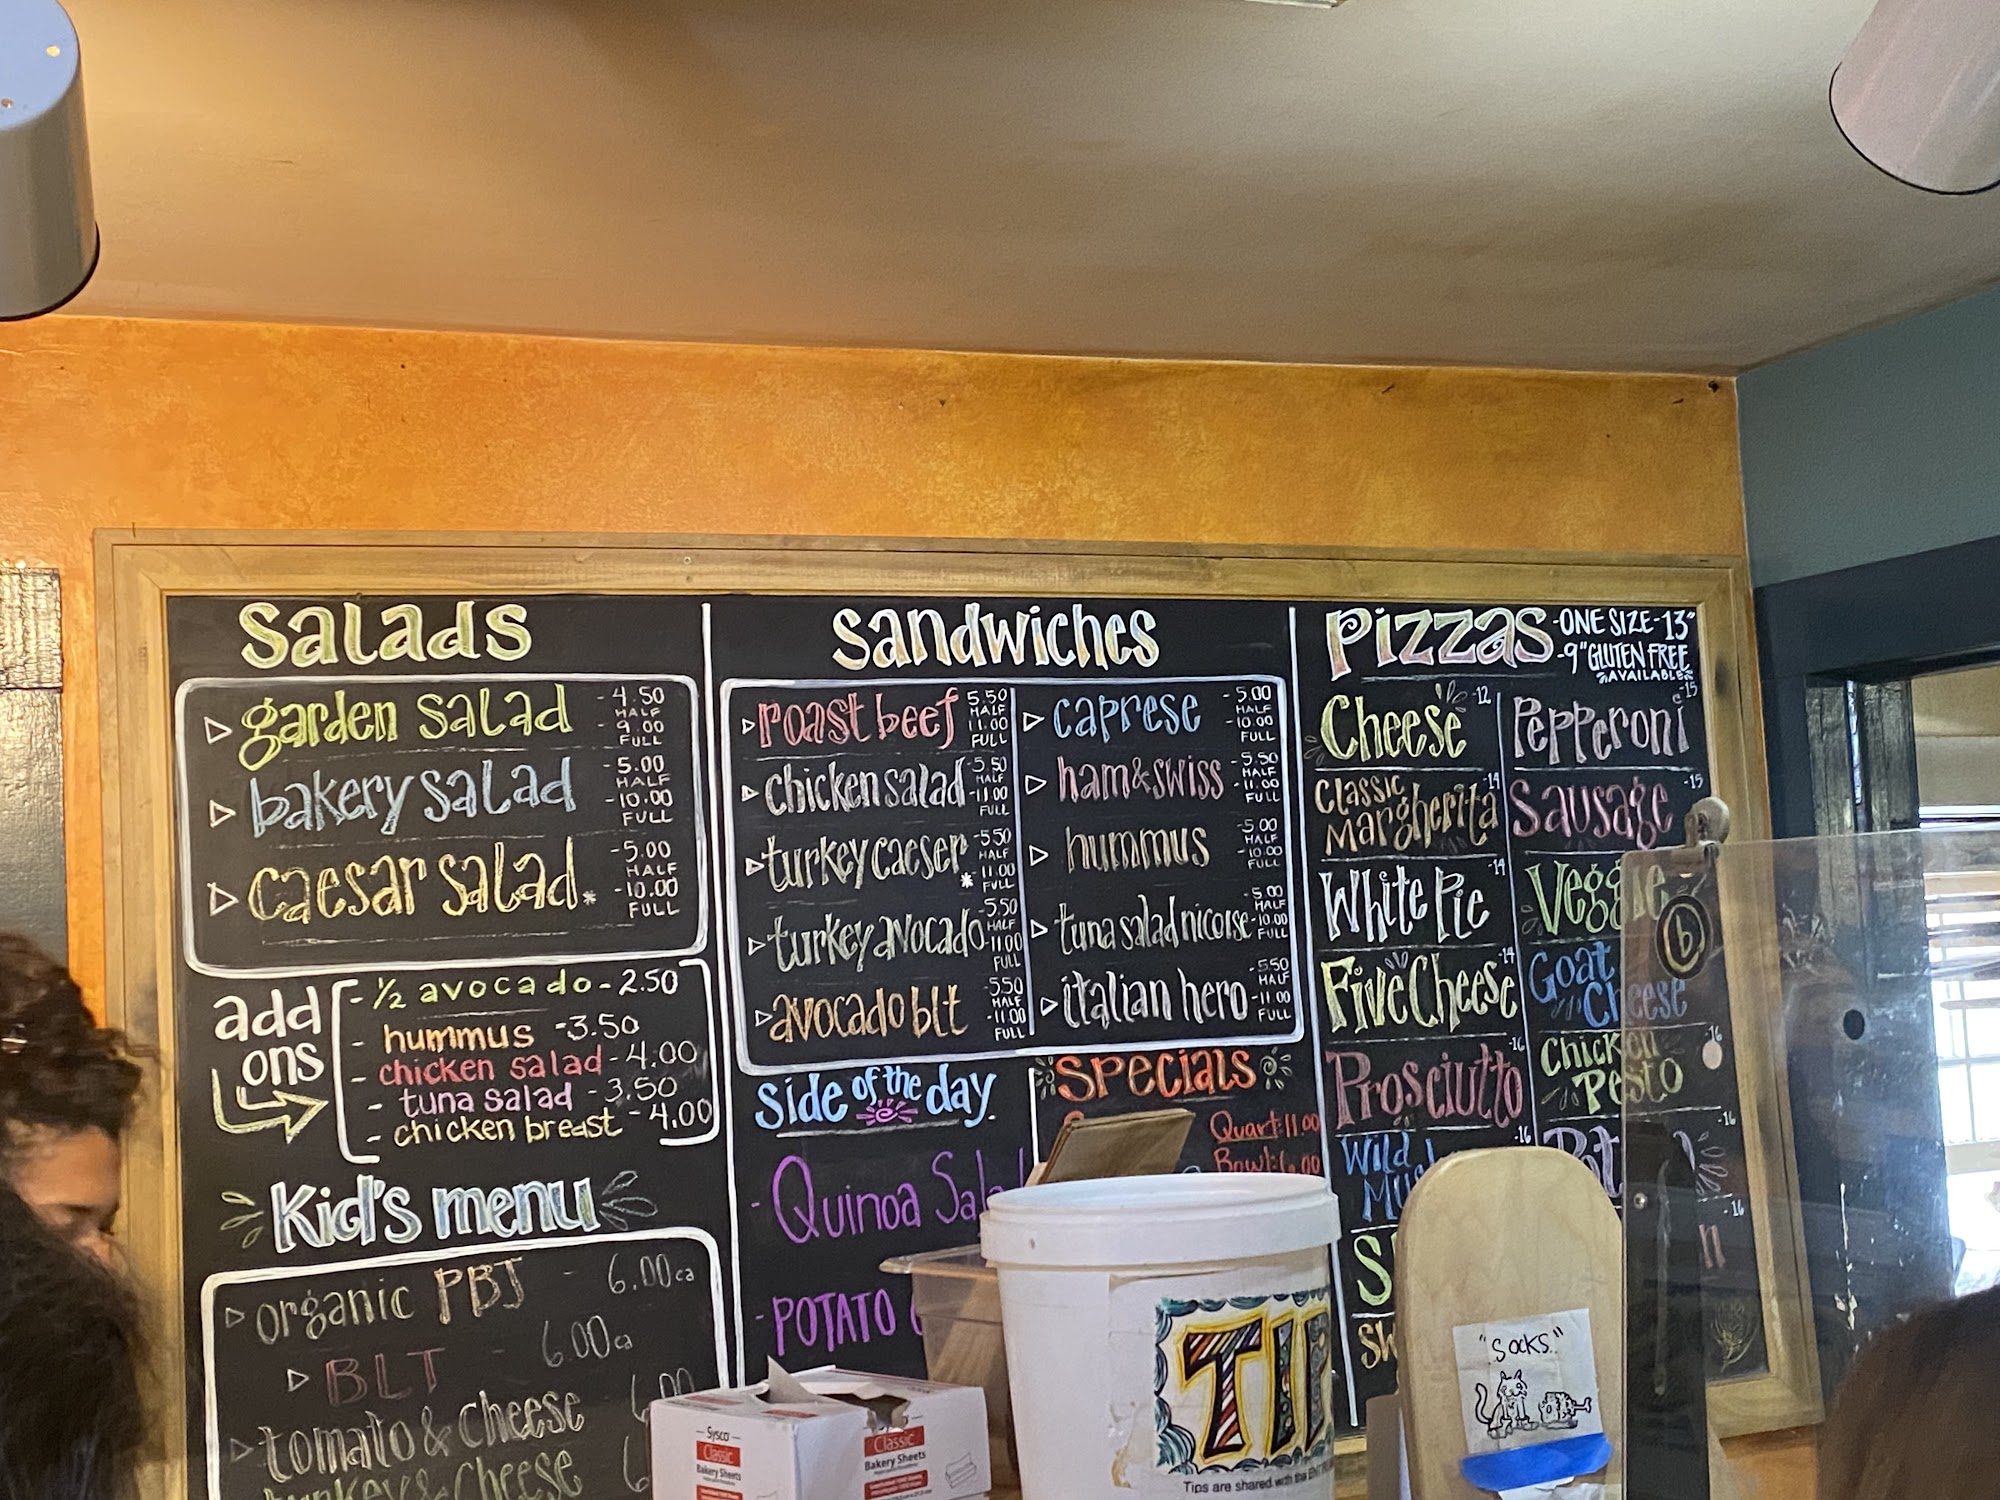 Salads
garden salad
- 4.50
HALF
- 9.00
FULL
bakery salad
- 5.00
HALF
- 10.00
FULL
caesar salad *
- 5.00
HALF
- 10.00
FULL
add
ons
- ½ avocado - 2.50
- hummus - 3.50
- chicken salad - 4.00
- tuna salad - 3.50
- chicken breast - 4.00
Kid's menu
organic PBJ - 6.00 ea
BLT - 6.00 ea
tomato & cheese
turkey & cheese
Sandwiches
roast beef
5.50
HALF
11.00
FULL
chicken salad
- 5.50
HALF
- 11.00
FULL
turkey caeser *
- 5.50
HALF
11.00
FULL
turkey avocado
- 5.50
HALF
- 11.00
FULL
avocado blt
5.50
HALF
- 11.00
FULL
caprese
- 5.00
HALF
- 10.00
FULL
ham & swiss
- 5.50
HALF
- 11.00
FULL
hummus
- 5.00
HALF
- 10.00
FULL
tuna salad nicoise
- 5.00
HALF
- 10.00
FULL
italian hero
- 5.50
HALF
- 11.00
FULL
side of the day
- Quinoa
- POTATO
Specials
Quart: 11.00
Bowl: 6.00
Pizzas
- ONE SIZE - 13"
- 9" GLUTEN FREE
AVAILABLE
Cheese - 12
Classic
Margherita - 14
White Pie - 14
Five Cheese - 14
Prosciutto - 16
Wild - 16
Pepperoni - 15
Sausage - 15
Veggie
Goat
Cheese
Chicken
Pesto - 16
- 16
- 16
b
Sysco
Classic
Bakery Sheets
Classic
Bakery Sheets
Tips are shared with the
"SOCKS"